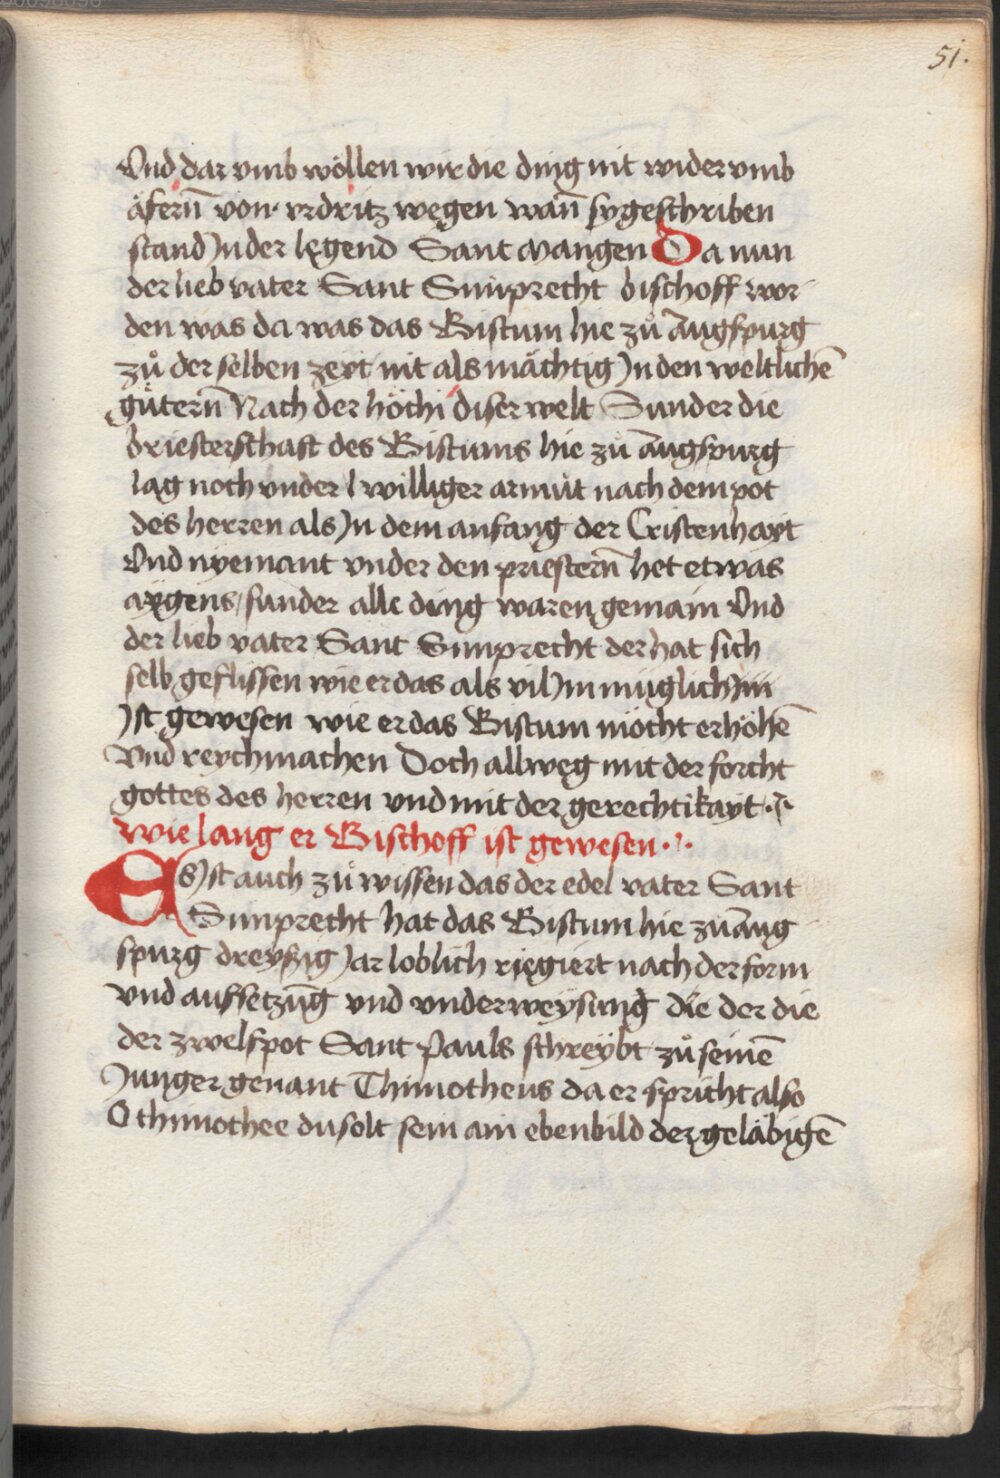 51.
Vnd dar vmb wöllen wir die ding nit wider vmb
äferñ von vrdritz wegen wañ sy geschriben
stand Jn der legend Sant Mangen Da nun
der lieb vater Sant Simprecht bischoff wor
den was da was das Bistum hie zů Augspurg
zů der selben zeyt nit als mächtig Jn den weltlichē
gütterñ Nach der höchi diser welt Sunder die
briesterschaft des Bistums hie zů Augspurg
lag noch vnder williger armůt nach dem pot
des herren als Jn dem anfang der Cristenhayt
Vnd nyemant vnder den priesterñ het etwas
aygens / sunder alle ding waren gemain Vnd
der lieb vater Sant Simprecht der hat sich
selb geflissen wie er das als vil Jm muglich
Jst gewesen wie er das Bistum möcht erhöhē
Vnd reych machen Doch allweg mit der forcht
gottes des herren vnd mit der gerechtikayt
Wie lang er Bischoff ist gewesen
Es Jst auch zů wissen das der edel vater Sant
Simprecht hat das Bistum hie zů Aug
spurg dreyssig Jar loblich regiert nach der form
vnd auffsetzung vnd vnderweysung die der die
der zwelfpot Sant Pauls schreybt zů seinē
Junger genant Thimotheus da er spricht also
O thimothee du solt sein ain ebenbild der geläbigē